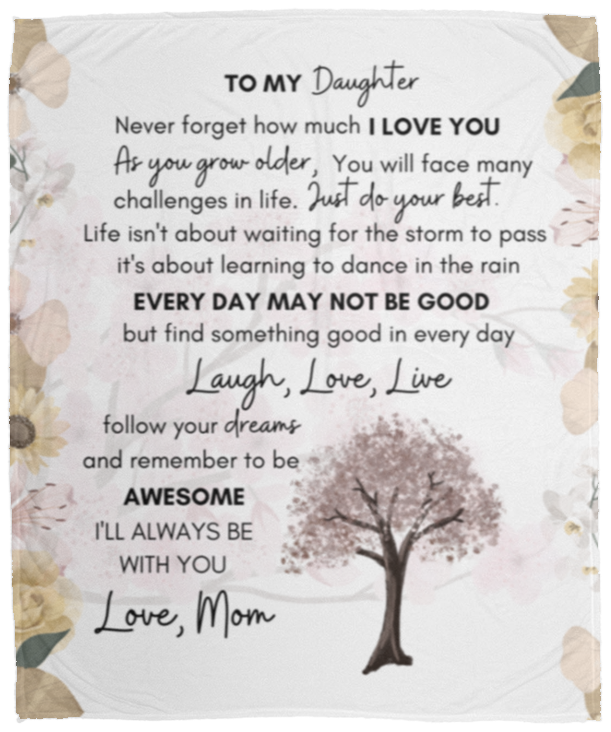 TO MY Daughter
Never forget how much I LOVE YOU
As you grow older, You will face many
challenges in life. Just do your best.
Life isn't about waiting for the storm to pass
it's about learning to dance in the rain
EVERY DAY MAY NOT BE GOOD
but find something good in every day
Laugh, Love, Live
follow your dreams
and remember to be
AWESOME
I'LL ALWAYS BE
WITH YOU
Love, Mom